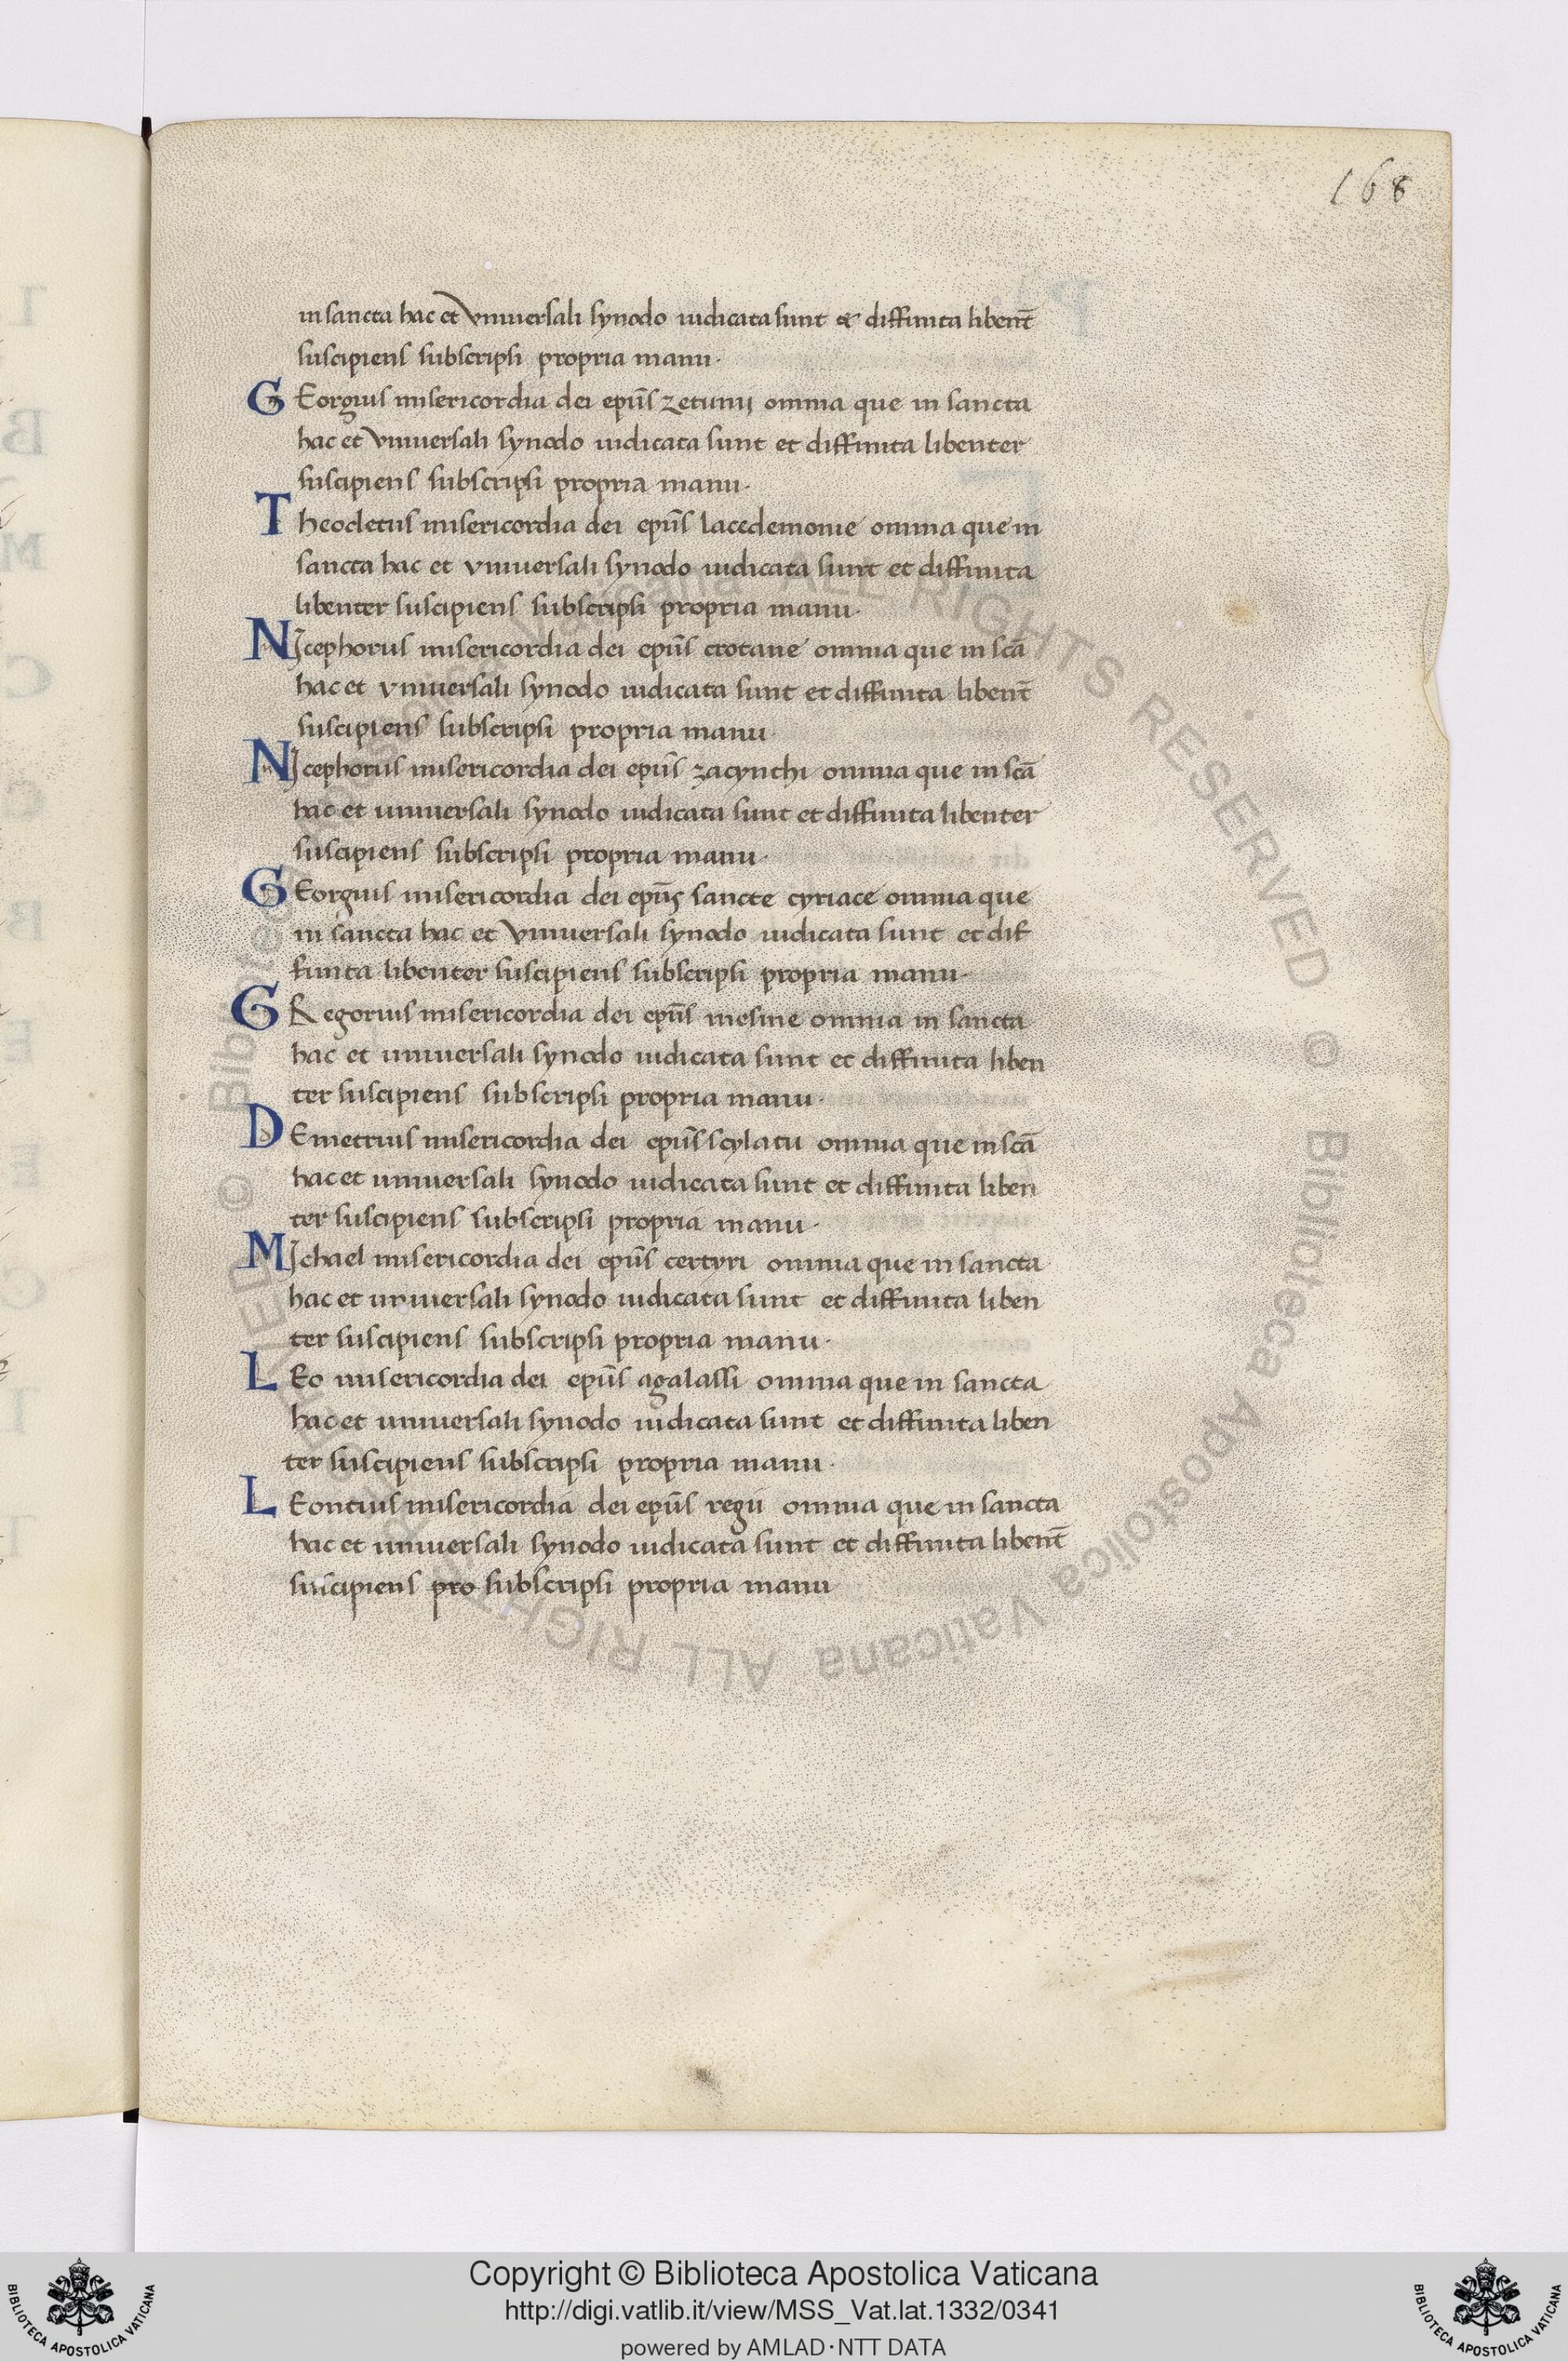 168
in sancta hac et vniuersali synodo iudicata sunt & diffinita libent̄
suscipiens subscripsi propria manu·
GEorgius misericordia dei ep̄us zetunij omnia que in sancta
hac et vniuersali synodo iudicata sunt et diffinita libenter
suscipiens subscripsi propria manu·
Theodetus misericordia dei ep̄us lacedemonie omnia que in
sancta hac et vniuersali synodo iudicata sunt et diffinita
libenter suscipiens subscripsi propria manu·
NIcephorus misericordia dei ep̄us crotane omnia que in scā
hac et vniuersali synodo iudicata sunt et diffinita libent̄
suscipiens subscripsi propria manu·
NIcephorus misericordia dei ep̄us zacynthi omnia que in scā
hac et uniuersali synodo iudicata sunt et diffinita libenter
suscipiens subscripsi propria manu·
GEorgius misericordia dei ep̄us sancte cyriace omnia que
in sancta hac et vniuersali synodo iudicata sunt et dif
finita libenter suscipiens subscripsi propria manu·
GRegorius misericordia dei ep̄us mesine omnia in sancta
hac et uniuersali synodo iudicata sunt et diffinita liben
ter suscipiens subscripsi propria manu·
DEmetrius misericordia dei ep̄us scylatii omnia que in scā
hac et uniuersali synodo iudicata sunt et diffinita liben
ter suscipiens subscripsi propria manu·
MIchael misericordia dei ep̄us certyri omnia que in sancta
hac et uniuersali synodo iudicata sunt et diffinita liben
ter suscipiens subscripsi propria manu·
LEo misericordia dei ep̄us agalassi omnia que in sancta
hac et uniuersali synodo iudicata sunt et diffinita liben
ter suscipiens subscripsi propria manu·
LEontius misericordia dei ep̄us regii omnia que in sancta
hac et uniuersali synodo iudicata sunt et diffinita libent̄
suscipiens pro subscripsi propria manu
Copyright © Biblioteca Apostolica Vaticana
http://digi.vatlib.it/view/MSS_Vat.lat.1332/0341
powered by AMLAD·NTT DATA
BIBLIOTECA APOSTOLICA VATICANA
BIBLIOTECA APOSTOLICA VATICANA
© Biblioteca Apostolica Vaticana ALL RIGHTS RESERVED © Biblioteca Apostolica Vaticana ALL RIGHTS RESERVED